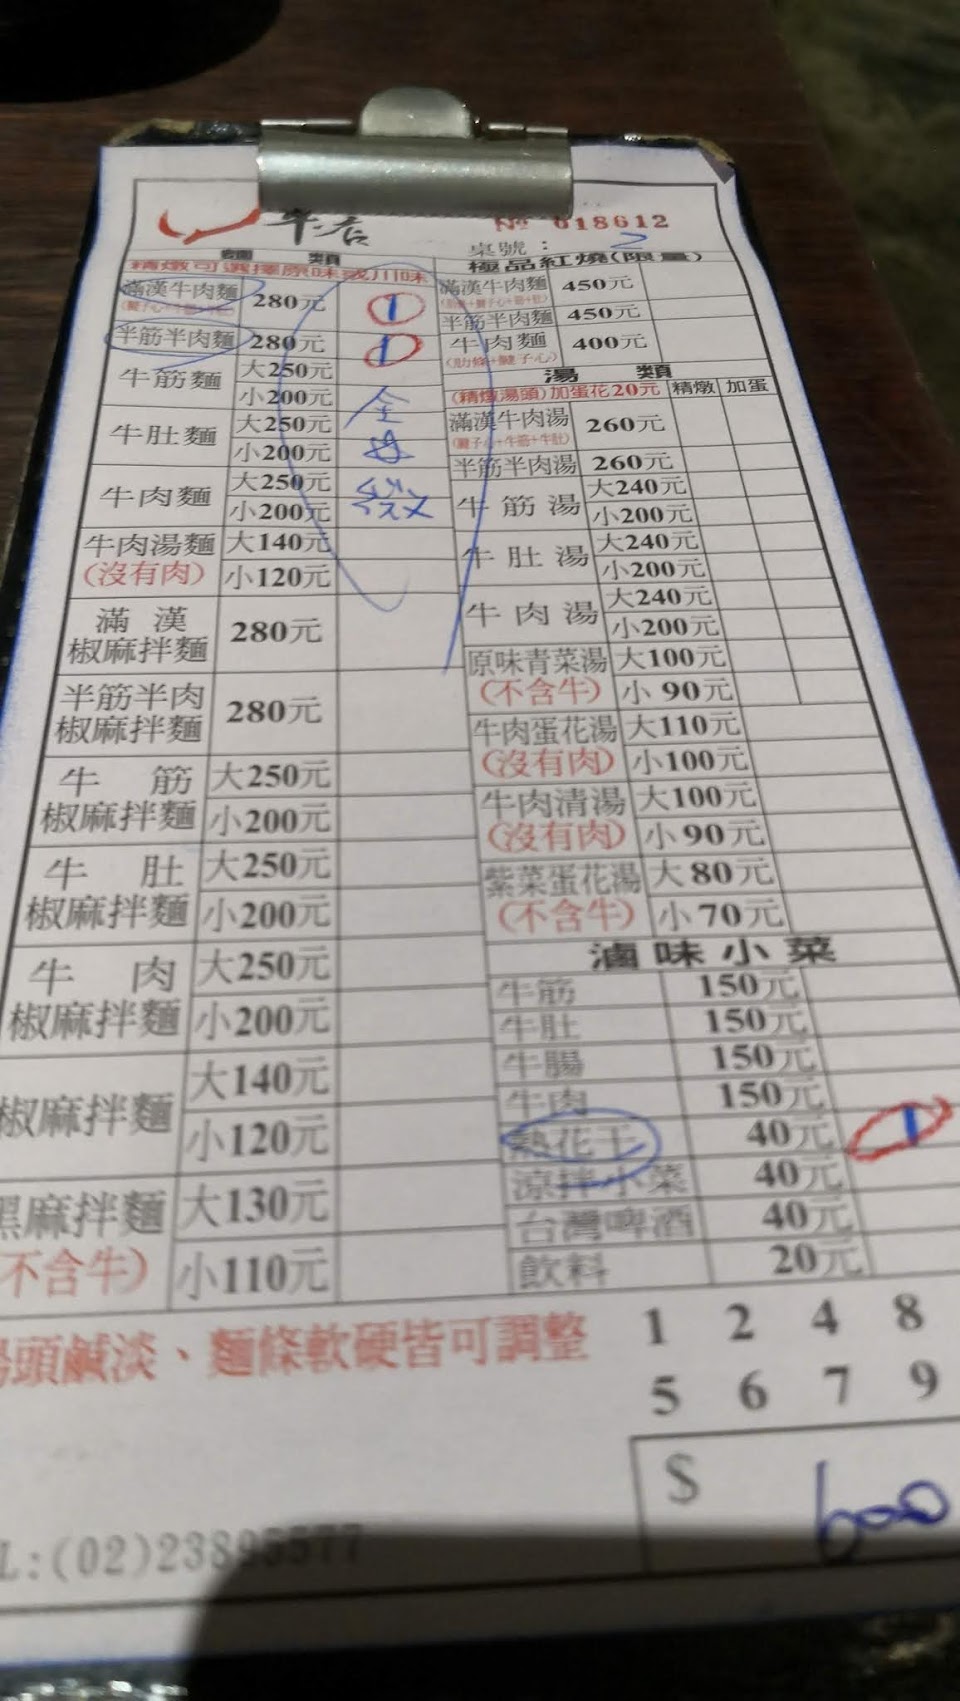 牛店
№ 018612
桌號： 2
麵 類
精燉可選擇原味或川味
滿漢牛肉麵 280元 1
半筋半肉麵 280元 1
牛筋麵 大250元
小200元 全
牛肚麵 大250元
小200元
牛肉麵 大250元
小200元
牛肉湯麵 大140元
(沒有肉) 小120元
滿漢 280元
椒麻拌麵
半筋半肉 280元
椒麻拌麵
牛筋 大250元
椒麻拌麵 小200元
牛肚 大250元
椒麻拌麵 小200元
牛肉 大250元
椒麻拌麵 小200元
椒麻拌麵 大140元
小120元
黑麻拌麵 大130元
(不含牛) 小110元
極品紅燒(限量)
滿漢牛肉麵 450元
半筋半肉麵 450元
牛肉麵 400元
(肋條+腱子心)
湯 類
(精燉湯頭)加蛋花20元 精燉 加蛋
滿漢牛肉湯 260元
(腱子心+牛筋+牛肚)
半筋半肉湯 260元
牛筋湯 大240元
小200元
牛肚湯 大240元
小200元
牛肉湯 大240元
小200元
原味青菜湯 大100元
(不含牛) 小 90元
牛肉蛋花湯 大110元
(沒有肉) 小100元
牛肉清湯 大100元
(沒有肉) 小 90元
紫菜蛋花湯 大 80元
(不含牛) 小 70元
滷味小菜
牛筋 150元
牛肚 150元
牛腸 150元
牛肉 150元
熱花干 40元 1
涼拌小菜 40元
台灣啤酒 40元
飲料 20元
湯頭鹹淡、麵條軟硬皆可調整
1 2 4 8
5 6 7 9
$ 600
L:(02)23895577